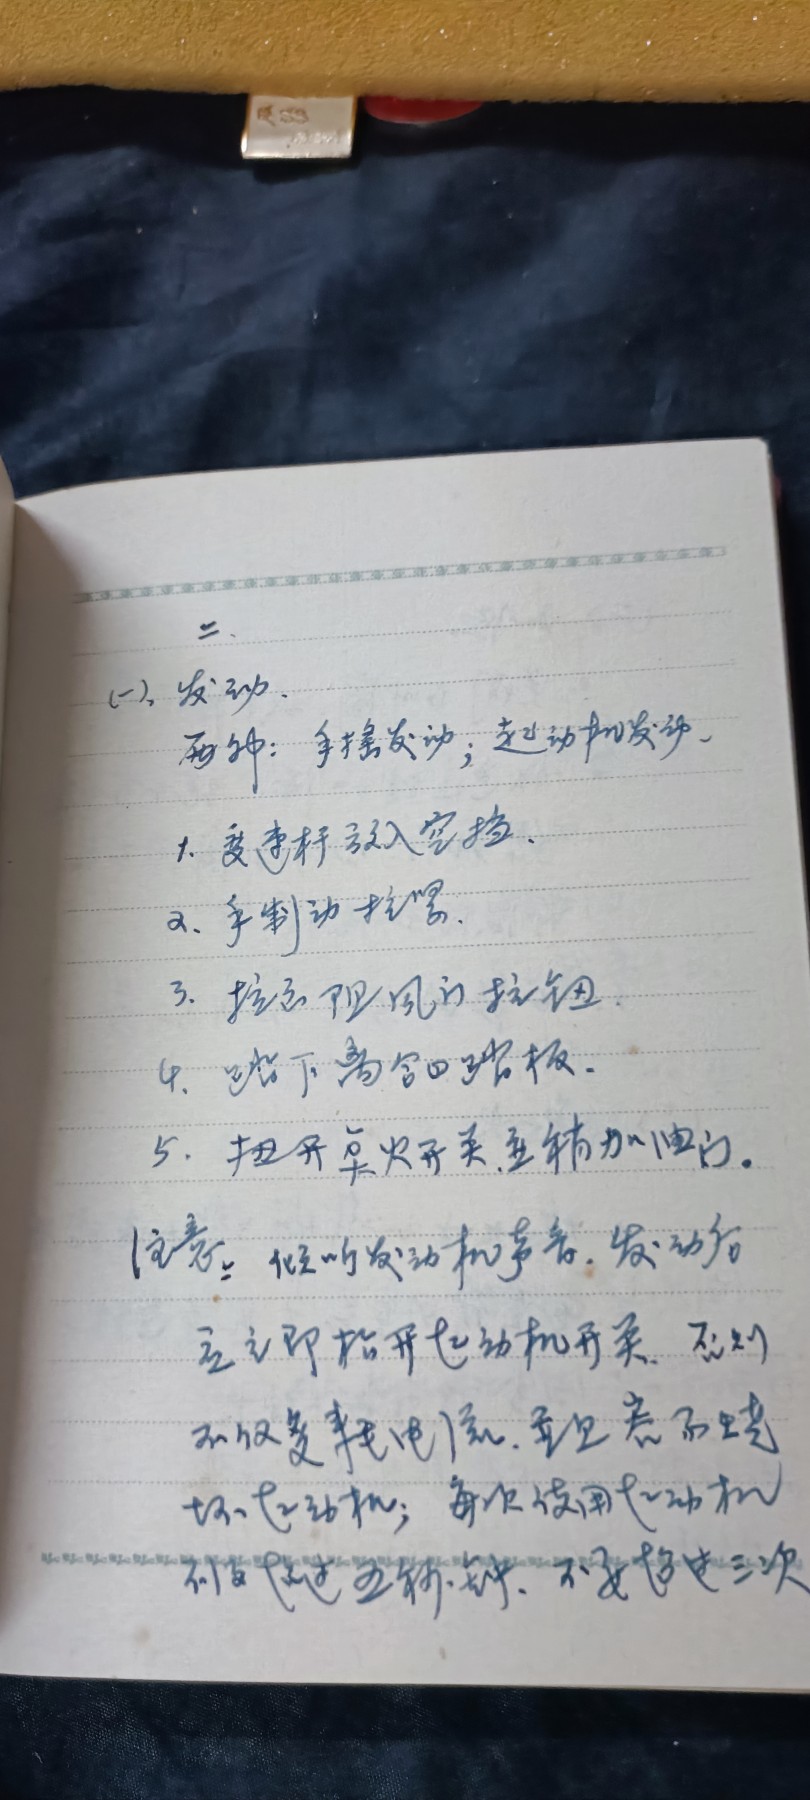 二、
(一)、发动.
两种：手摇发动；起动机发动.
1. 变速杆放入空挡.
2、手制动拉紧.
3. 拉出阻风门拉钮.
4. 踏下离合器踏板.
5. 扭开点火开关,并稍加油门。
注意：倾听发动机声音.发动后
应立即抬开起动机开关.否则
不仅多耗电流.并且容易烧
坏起动机；每次使用起动机
不要超过五秒钟.不要超过三次